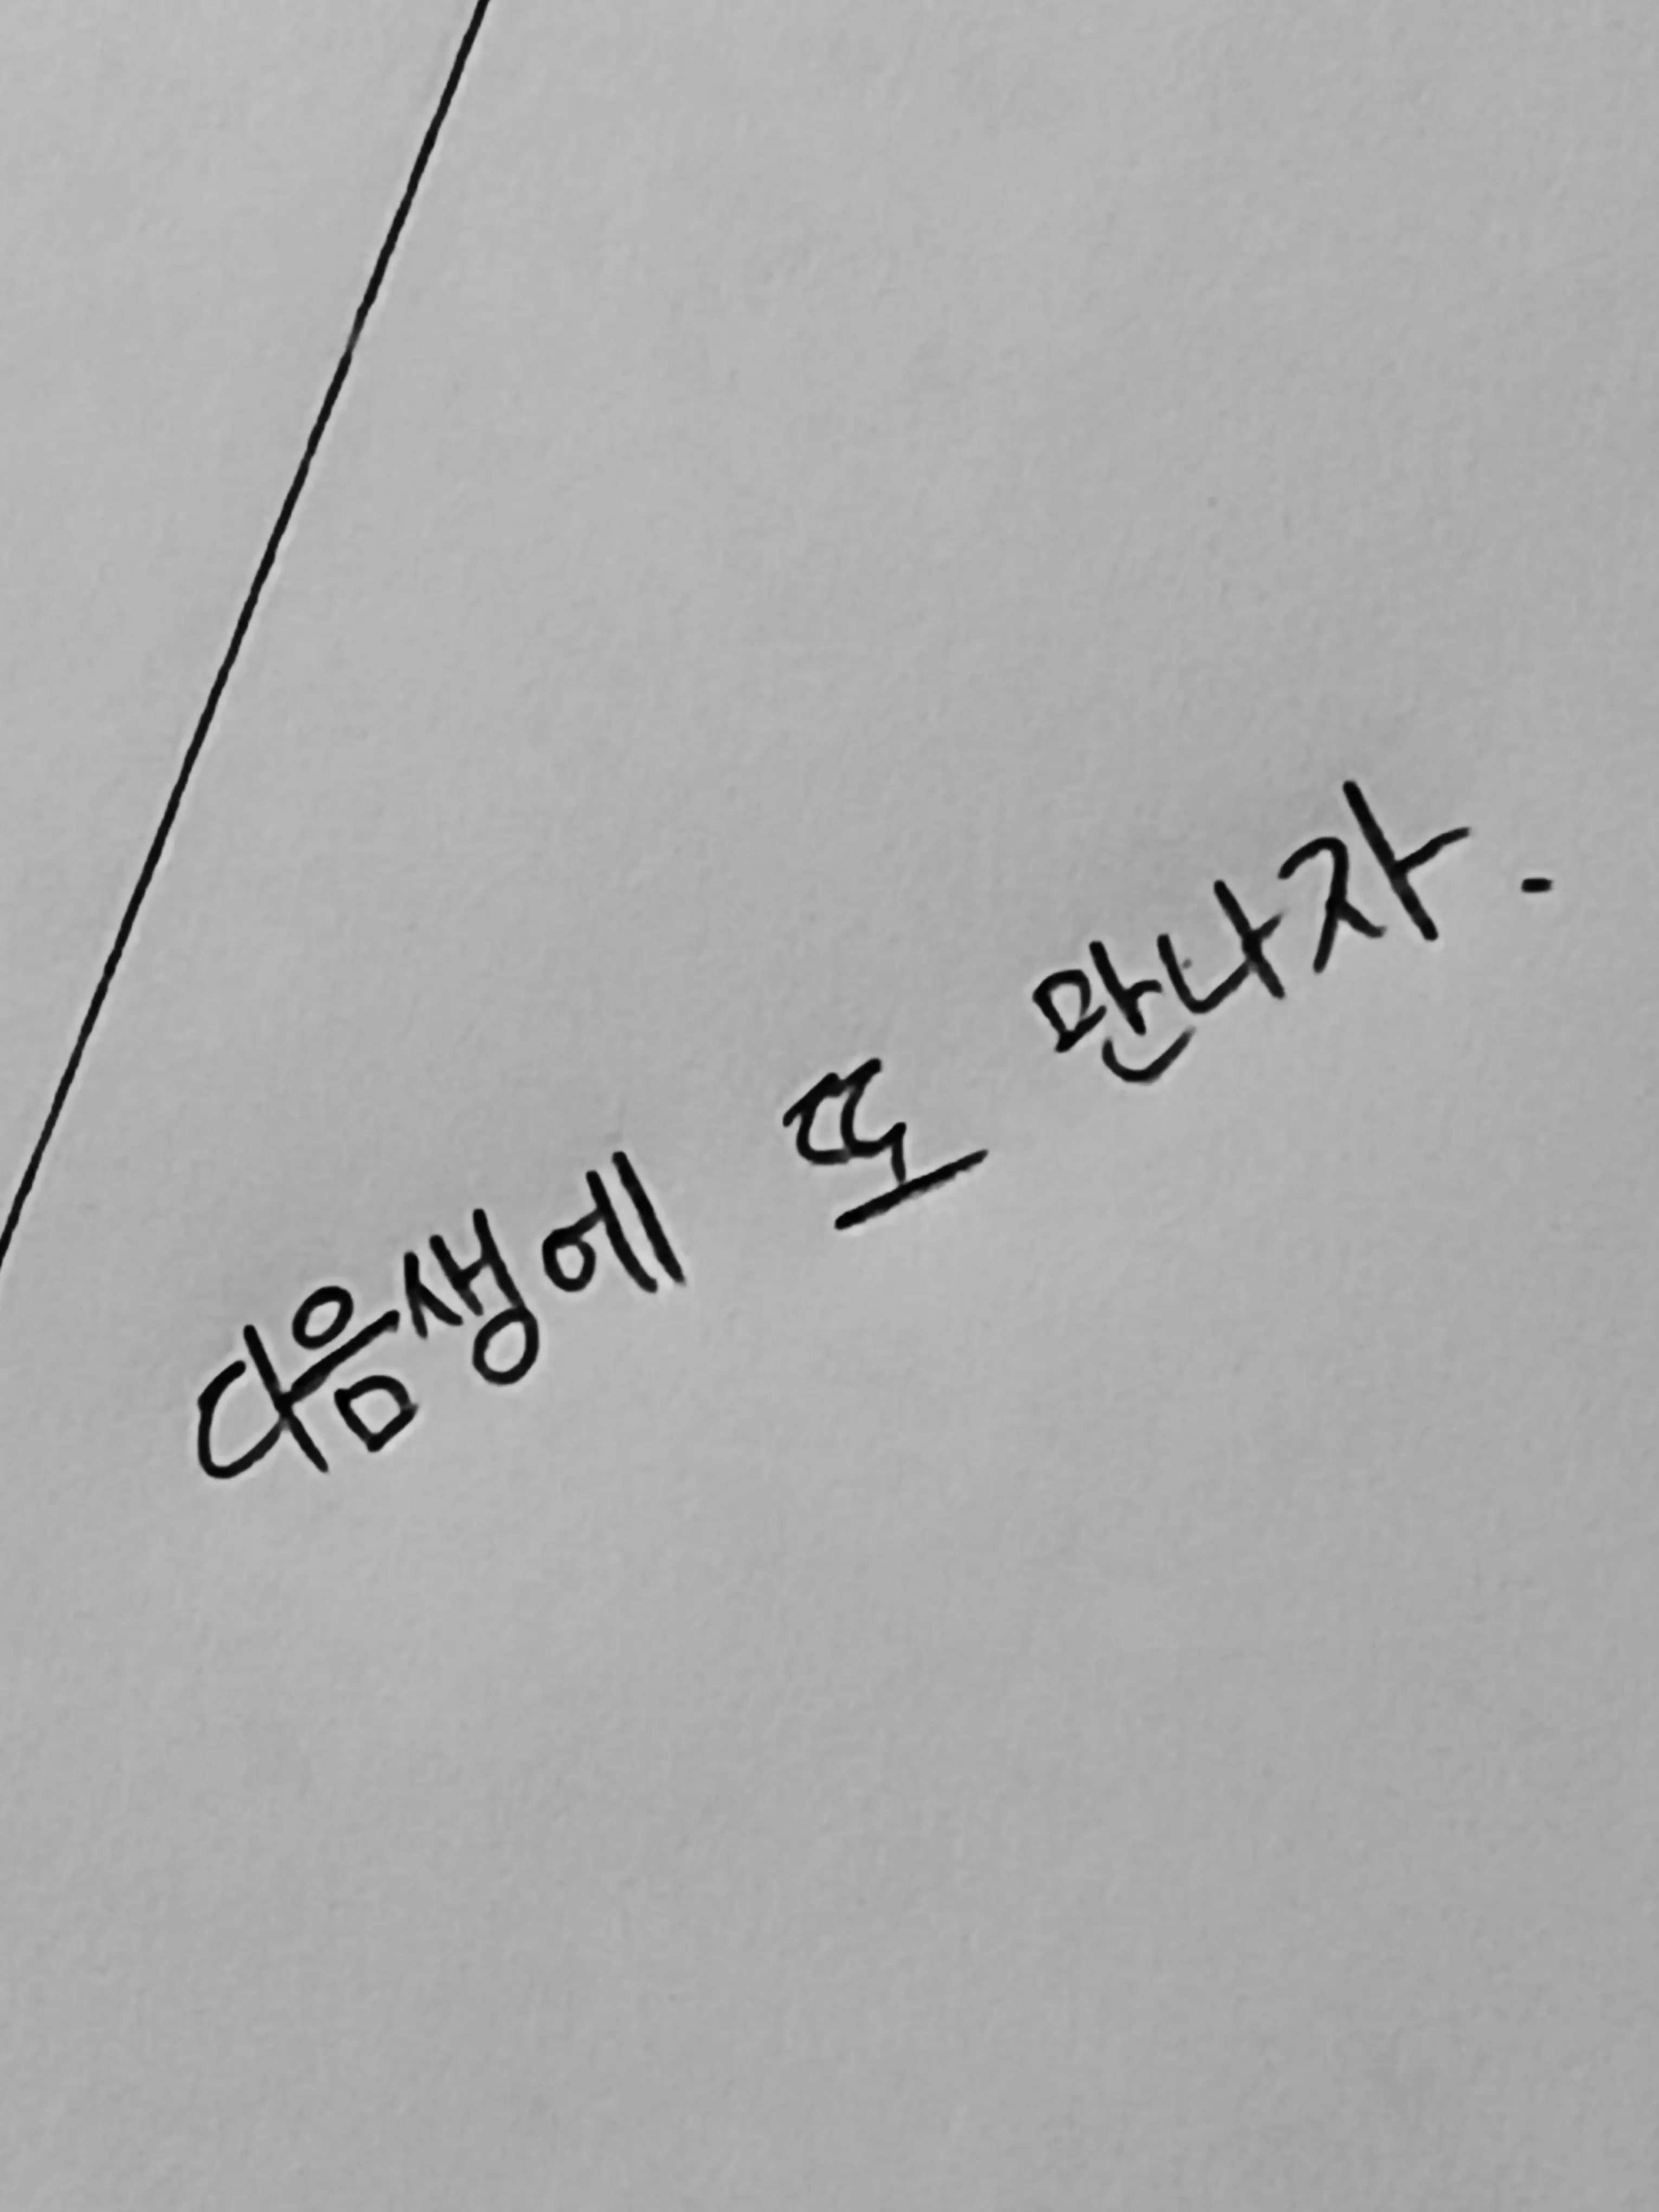 다음생에 또 만나자.